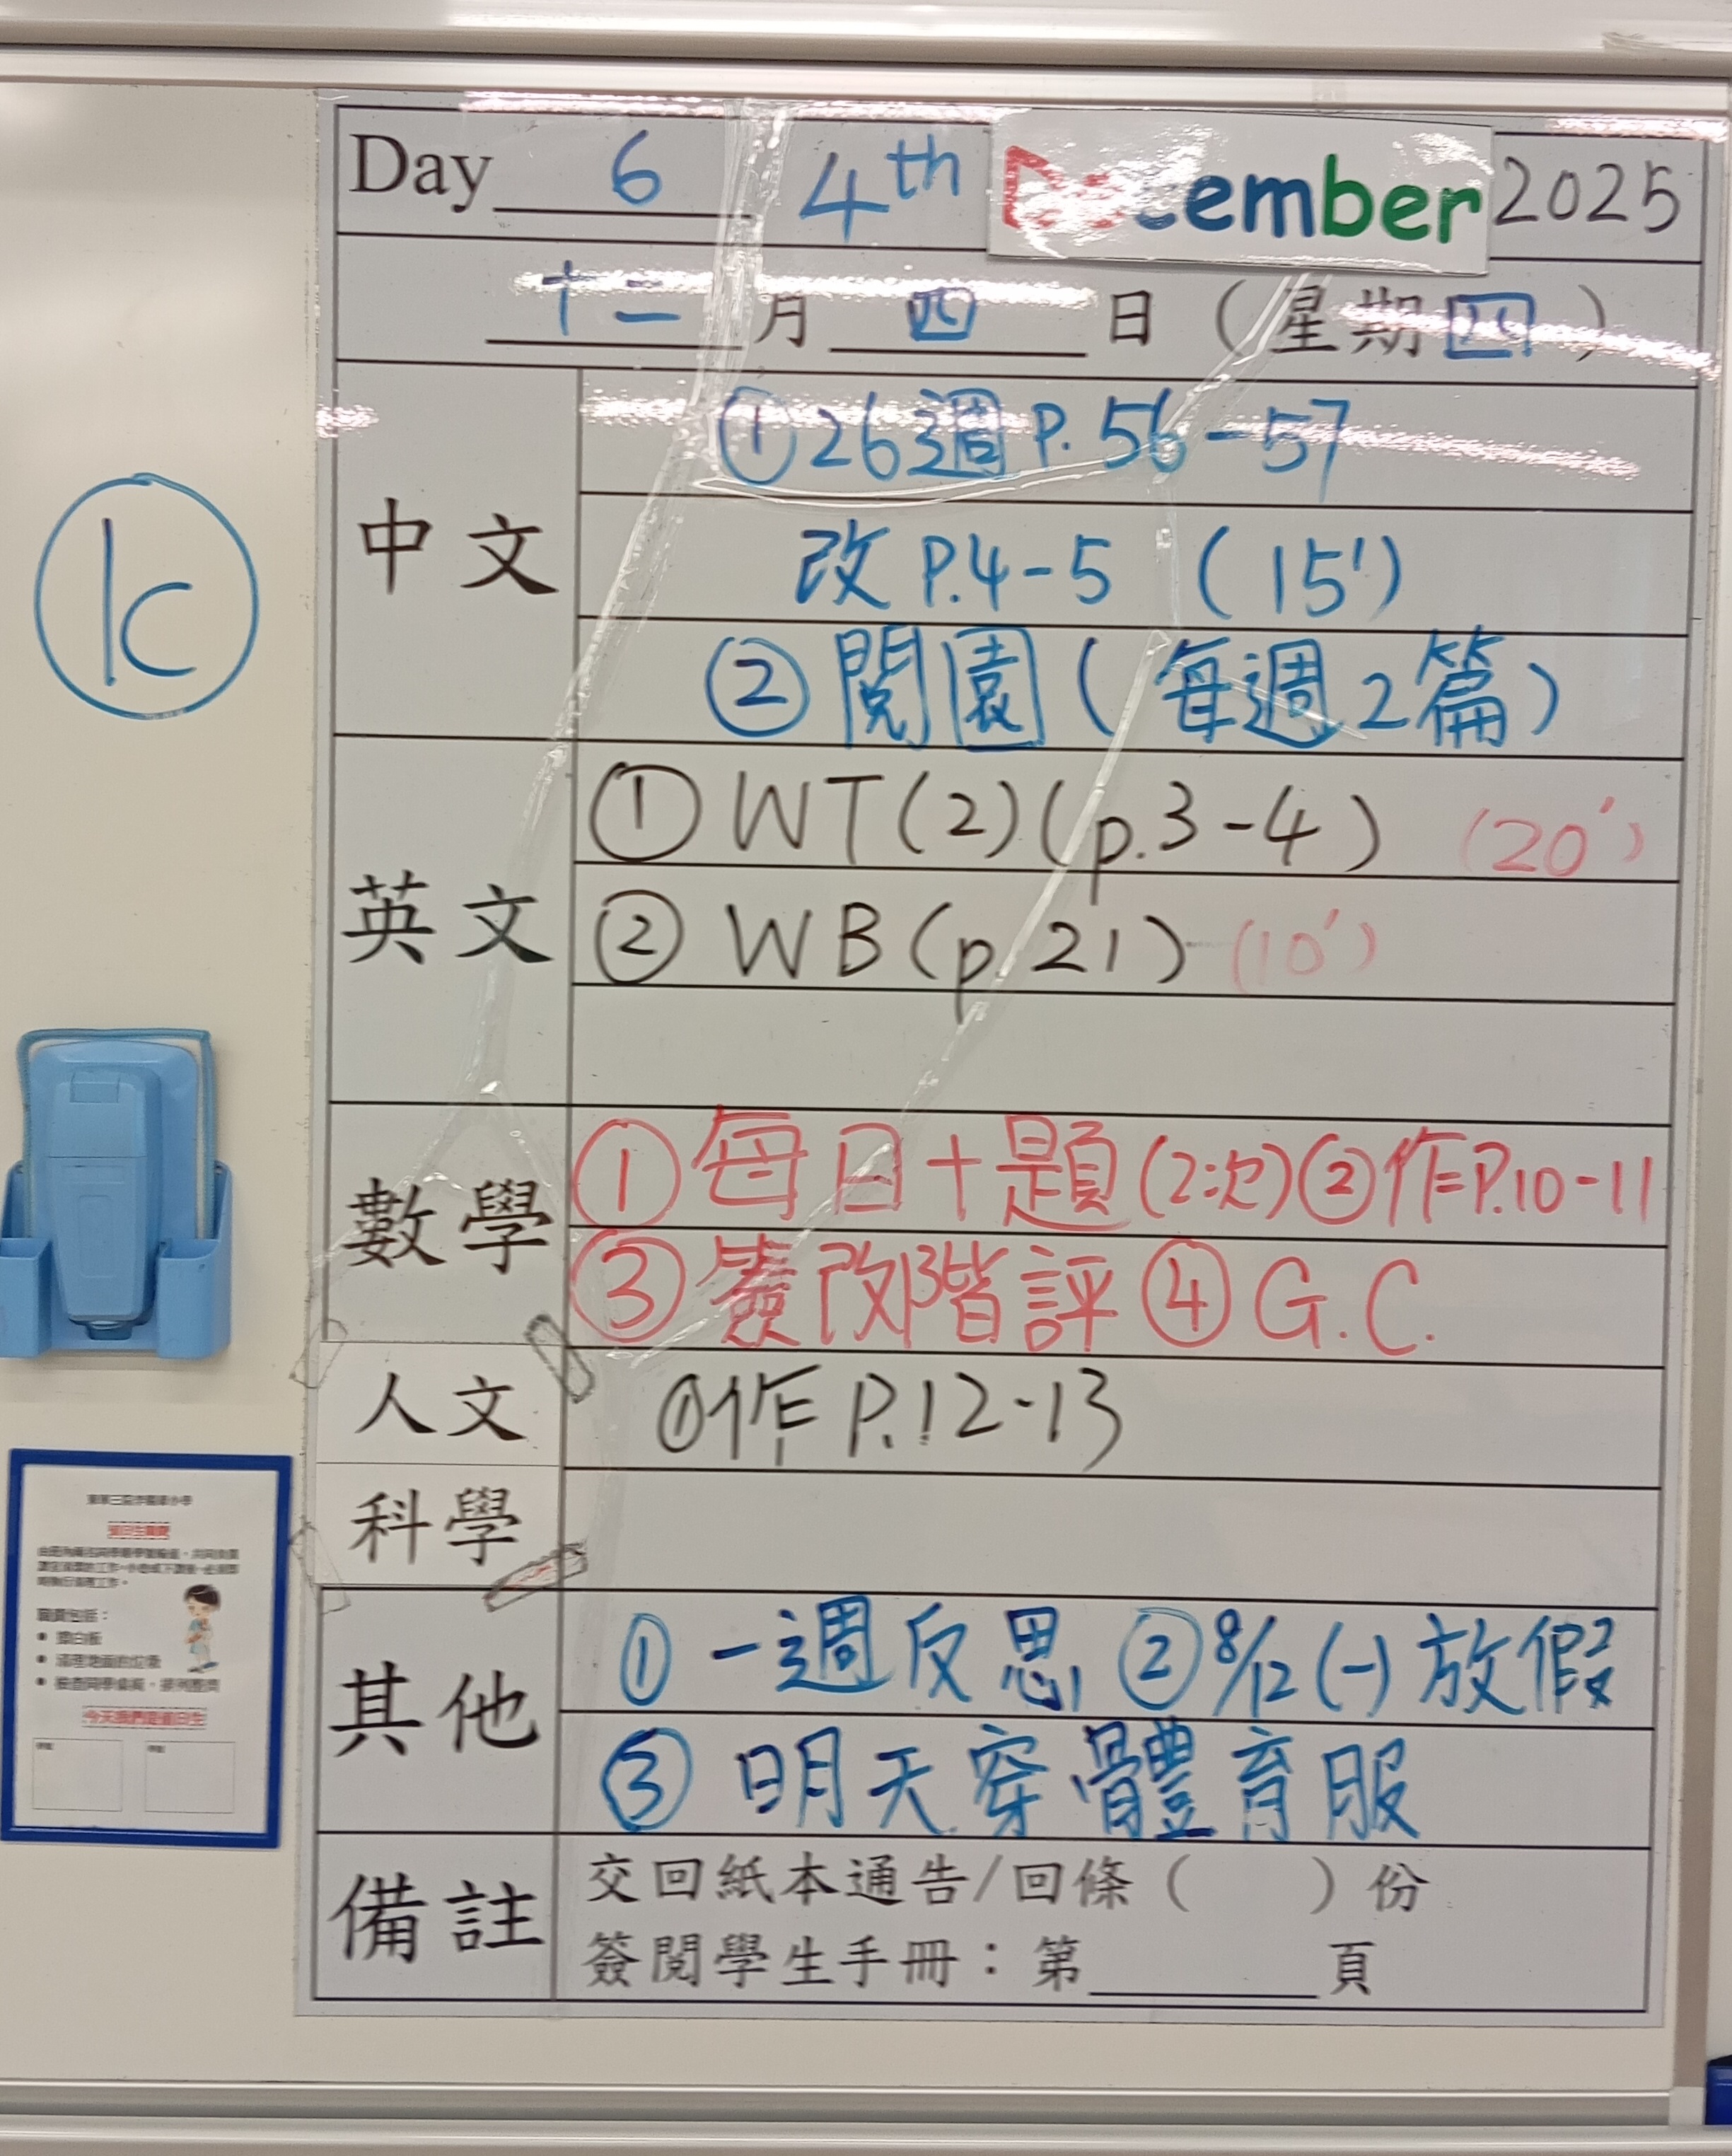 Day 6 4th December 2025
十二 月 四 日（星期四）
1C
中文
①26週 P.56-57
改 P.4-5 (15')
②閱園(每週2篇)
英文
① WT(2)(p.3-4) (20')
② WB(p.21) (10')
數學
①每日十題(2次)②作P.10-11
③簽改階評④G.C.
人文
①作 P.12-13
科學
其他
①一週反思 ②8/12(一)放假
③明天穿體育服
備註
交回紙本通告/回條（　　）份
簽閱學生手冊：第______頁
職責包括：
今天我們是值日生